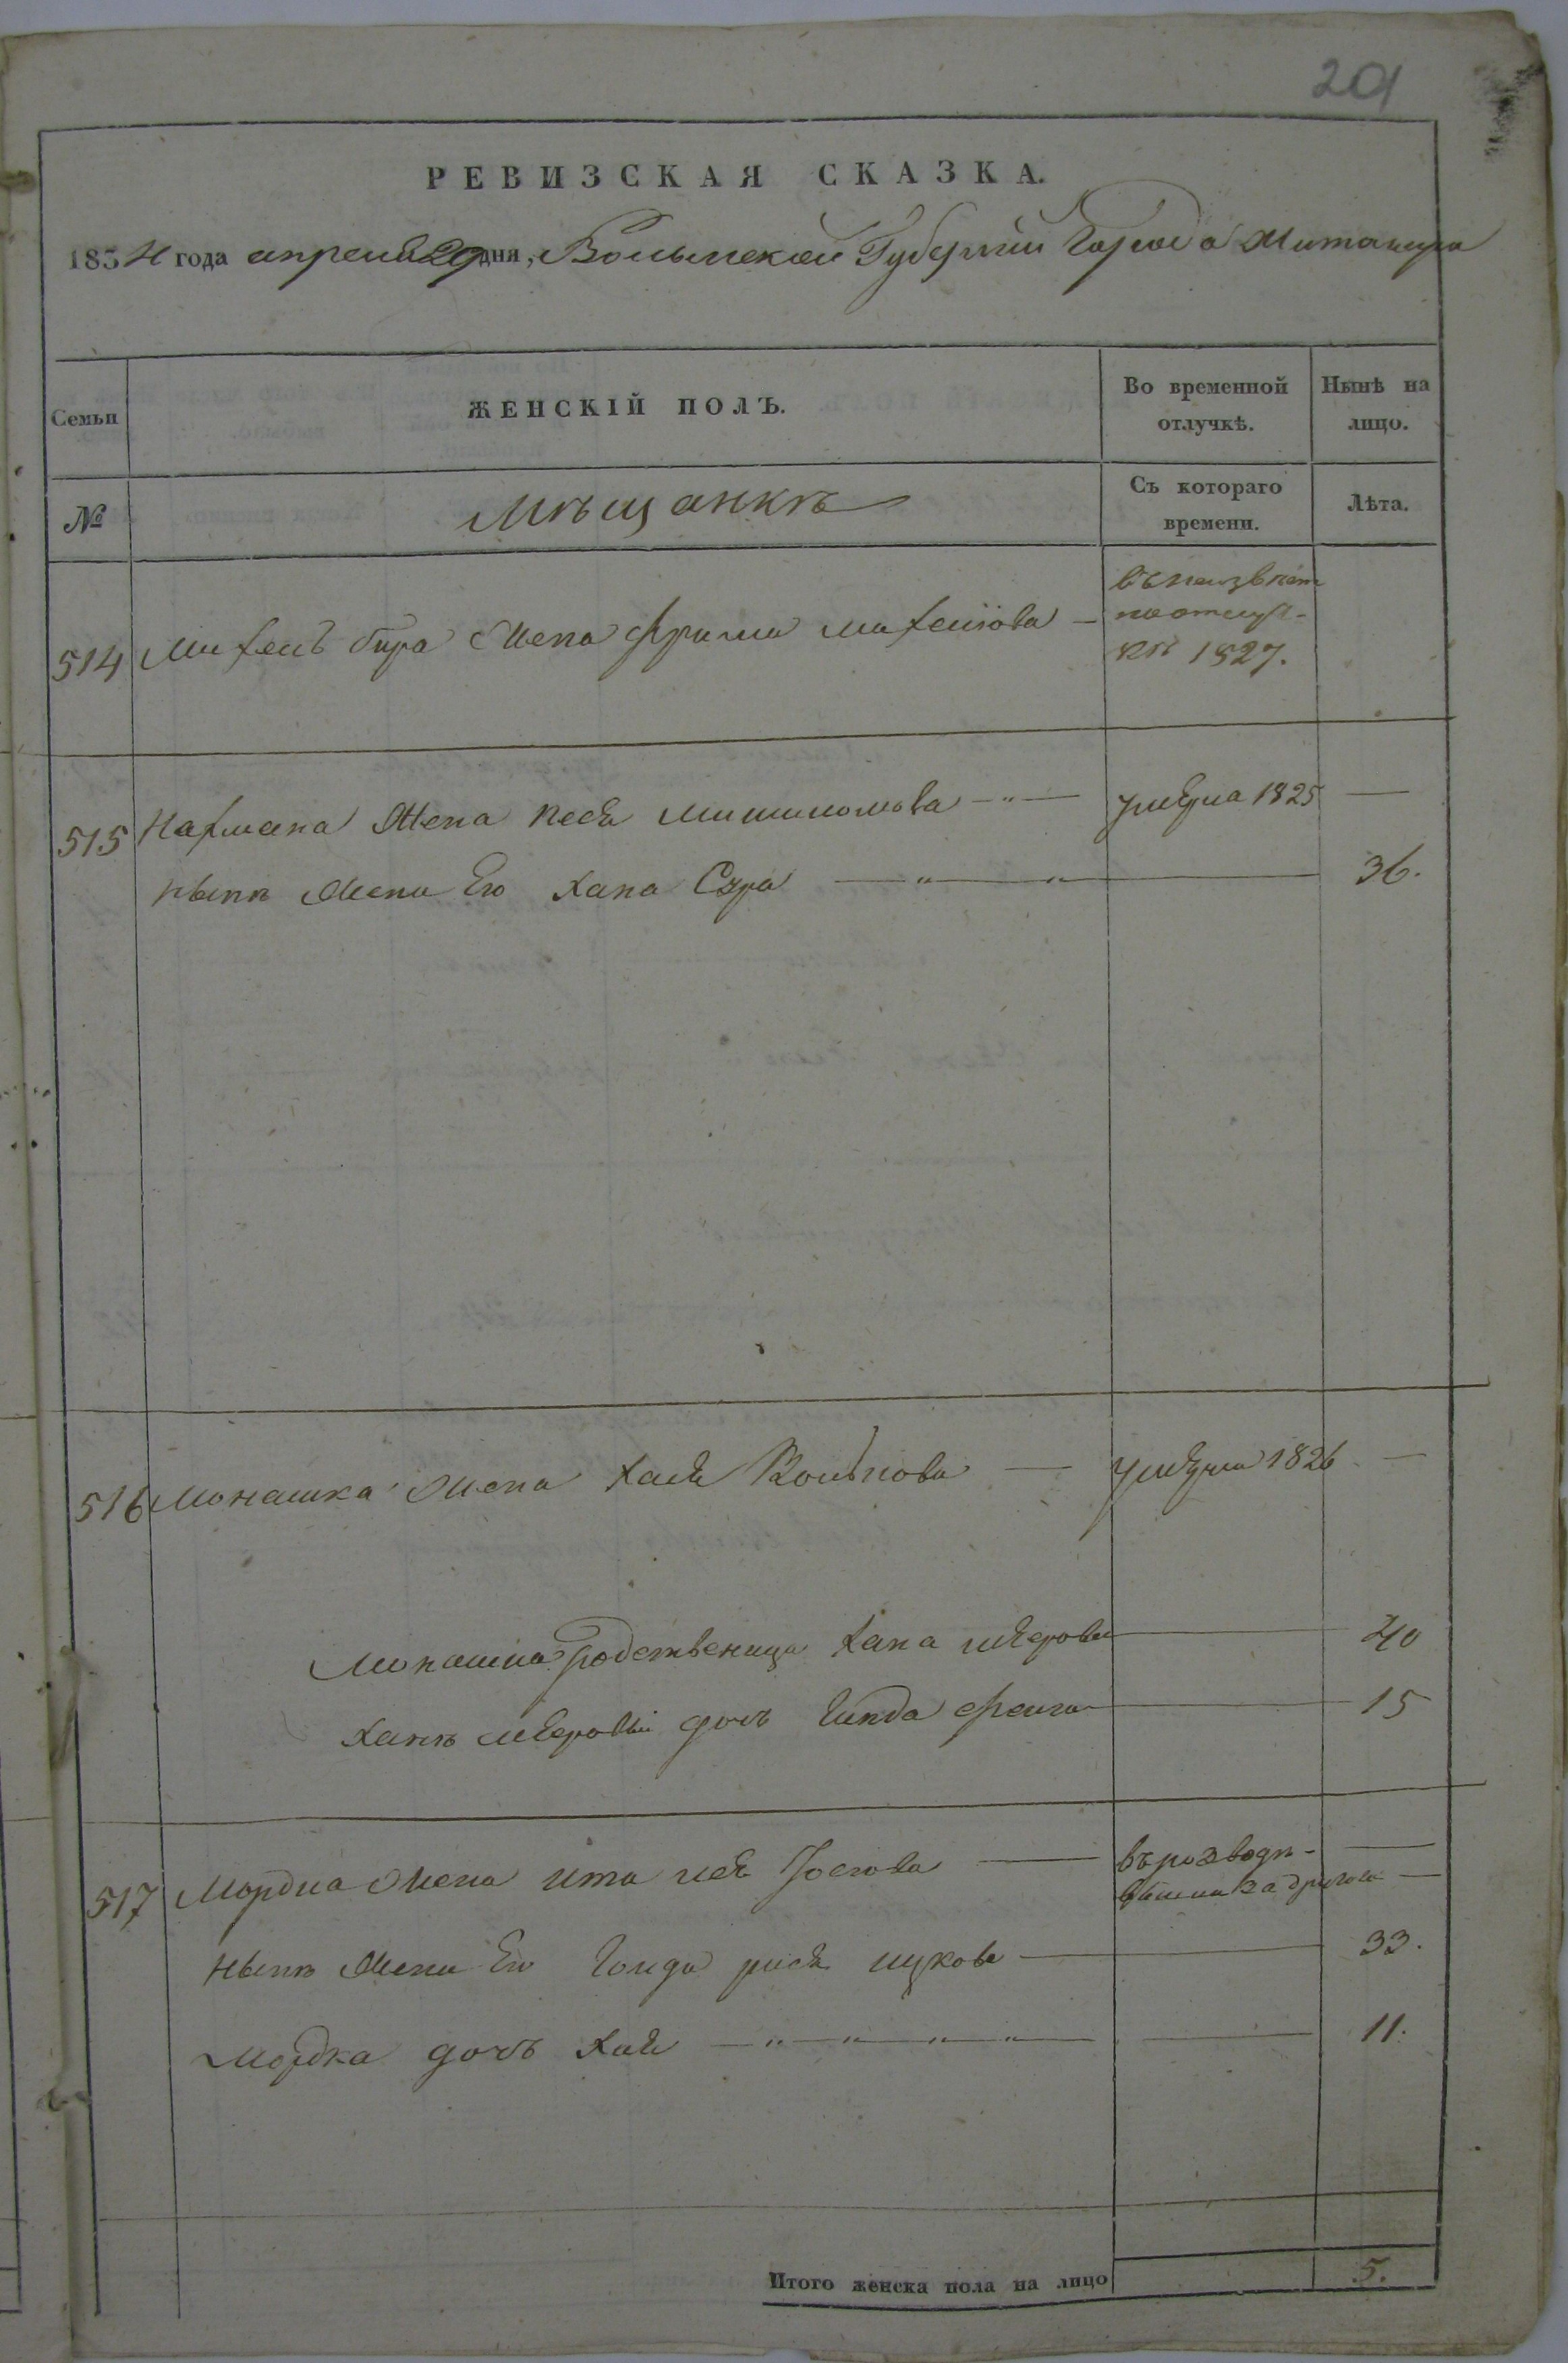 201
РЕВИЗСКАЯ СКАЗКА.
1834 года апреля 29 дня, Волынской Губернии Города Житомира
Семьи ЖЕНСКІЙ ПОЛЪ. Во временной отлучкѣ. Нынѣ на лицо.
№ Мѣщанкѣ Съ котораго времени. Лѣта.
514 Михель бира Жена Фрима михелiова — въ неизвѣст
по отлуч-
кѣ 1827.
515 Нахмана Жена Песя — " — умерла 1825 —
нынѣ Жена Его Хана Сура — " — " — 36.
516 Монашка Жена Хая Вольпова — умерла 1826 —
Монашка родственица Хана меерова — 40
Ханѣ мееровый дочь Гинда Фейга — 15
517 Мордка Жена Ита — въ розводѣ —
вышла за другого —
нынѣ Жена Его Голда рися ицкова — 33.
Мордка дочь Хая — " — " — " — " — 11.
Итого женска пола на лицо 5.